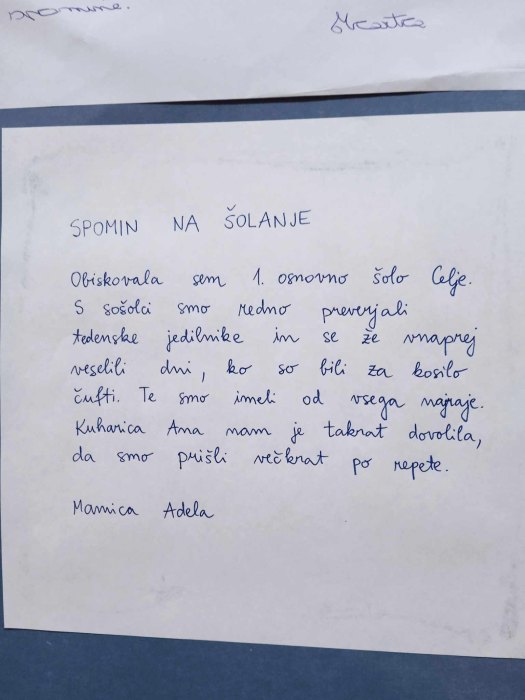 spomine.
SPOMIN NA ŠOLANJE
Obiskovala sem 1. osnovno šolo Celje.
S sošolci smo redno preverjali
tedenske jedilnike in se že vnaprej
veselili dni, ko so bili za kosilo
čufti. Te smo imeli od vsega najraje.
Kuharica Ana nam je takrat dovolila,
da smo prišli večkrat po repete.
Mamica Adela